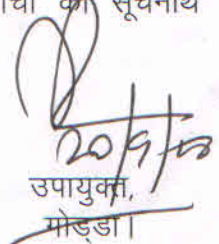 का सूचनार्थ
20/9/
उपायुक्त,
गोड्डा।